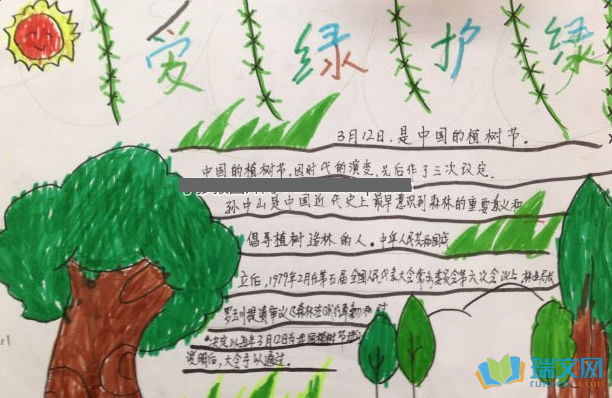 爱绿护绿
3月12日,是中国的植树节。
中国的植树节,因时代的演变,先后作了三次改定。
孙中山是中国近代史上最早意识到森林的重要意义和
倡导植树造林的人。中华人民共和国成
立后,1979年2月在第五届全国人民代表大会常务委员会第六次会议上
罗玉川提请审议《森林法
以每年3月12日为我国植树节
说明后,大会予以通过。
瑞文网